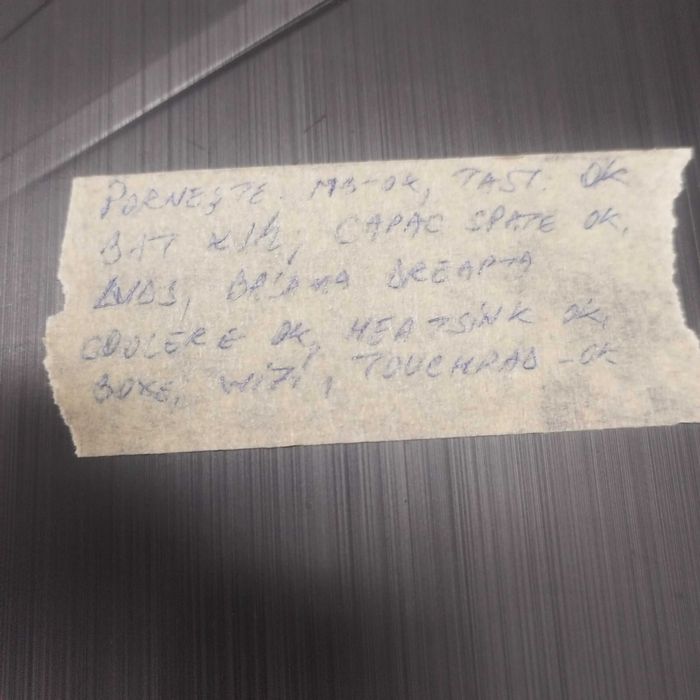 PORNEȘTE. MB-OK, TAST. OK
BAT x1h, CAPAC SPATE OK,
LVDS, BALAMA DREAPTA
COOLERE OK, HEATSINK OK,
BOXE, WIFI, TOUCHPAD-OK